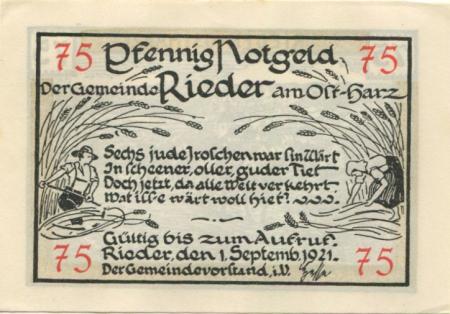 75 Pfennig Notgeld 75
Der Gemeinde Rieder am Ost-Harz
Sechs jude Jroschen war sin Wärt
In scheener, oller, guder Tiet
Doch jetzt, da alle Welt verkehrt,
Wat is e wärt woll hiet?
Gültig bis zum Aufruf.
75 Rieder, den 1. Septemb. 1921. 75
Der Gemeindevorstand, i.V.